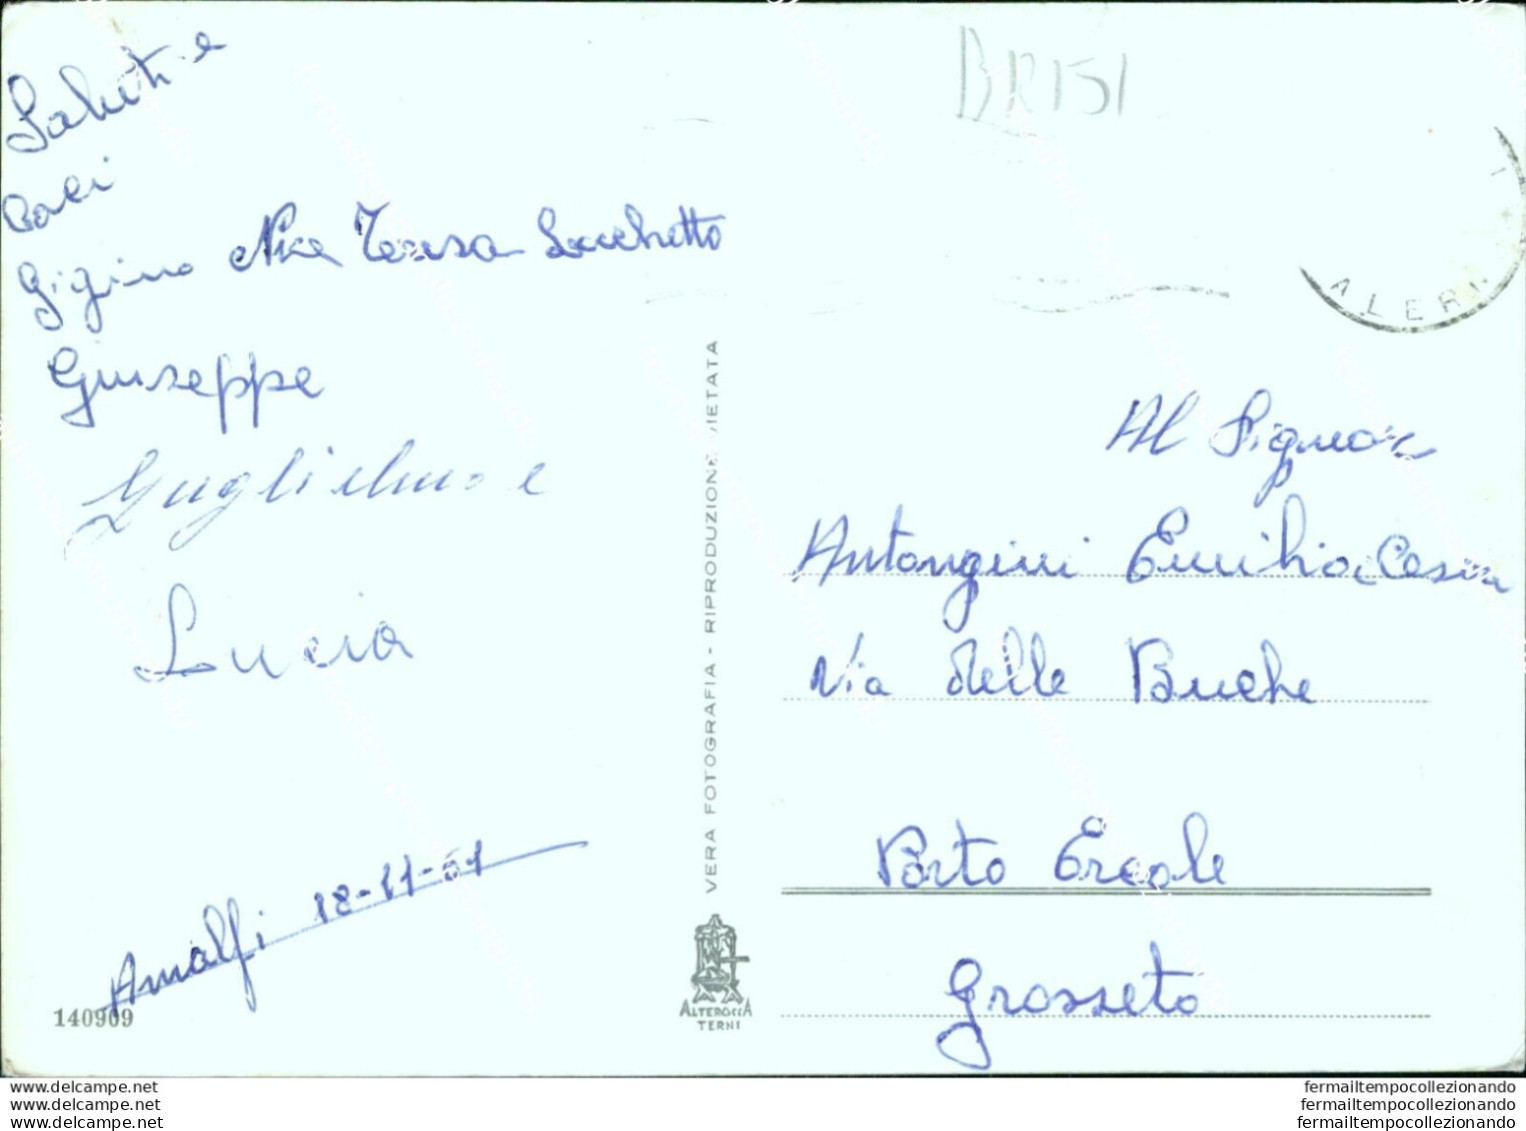 BR151
Saluti e
Baci
Gigino Nice Teresa Lucchetto
Giuseppe
Guglielmo e
Lucia
Amalfi 18-11-61
140909
VERA FOTOGRAFIA - RIPRODUZIONE VIETATA
ALTEROCCA
TERNI
ALERI
Al Signor
Antongini Emilio e Cesira
Via delle Buche
Porto Ercole
Grosseto
www.delcampe.net
www.delcampe.net
www.delcampe.net
fermailtempocollezionando
fermailtempocollezionando
fermailtempocollezionando